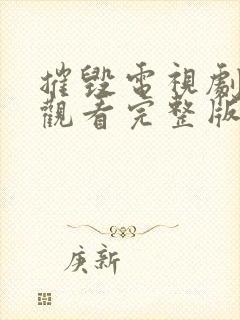 摧毀電視劇
觀看完整版
庚新